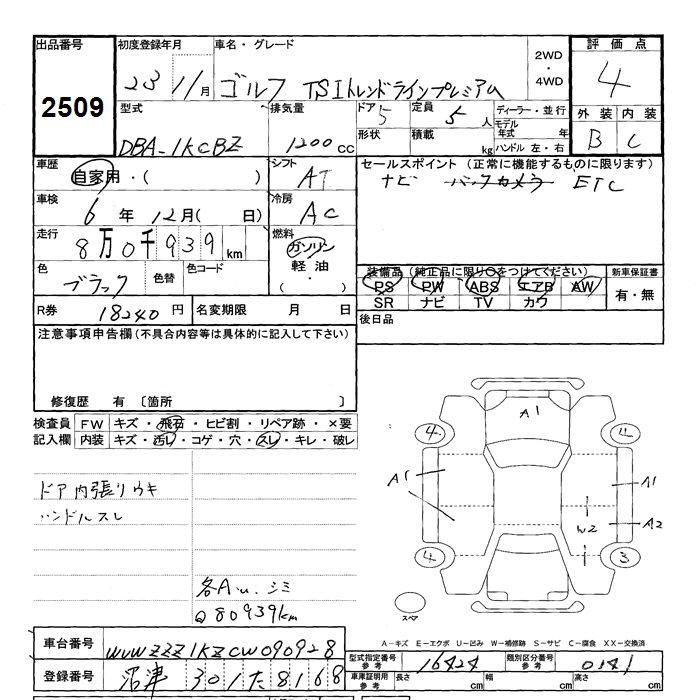 出品番号 初度登録年月 車名・グレード 2WD・4WD 評価点
2509 23 11月 ゴルフ TSIトレンドラインプレミアム 4
型式 排気量 ドア 定員 ディーラー・並行 外装 内装
DBA-1KCBZ 1200cc 5 5人 モデル年式 年 B C
形状 積載 kg ハンドル 左・右
車歴 シフト セールスポイント (正常に機能するものに限ります)
自家用・( ) AT ナビ バックカメラ ETC
車検 冷房
6年12月( 日) AC
走行 燃料
8万0千939km ガソリン
軽油・( )
色 色替 色コード 装備品(純正品に限り○をつけてください) 新車保証書
ブラック PS PW ABS エアB AW 有・無
SR ナビ TV カワ
R券 18240円 名変期限 月 日 後日品
注意事項申告欄(不具合内容等は具体的に記入して下さい)
修復歴 有 〔箇所 〕
検査員 FW キズ・飛石・ヒビ割・リペア跡・×要
記入欄 内装 キズ・汚レ・コゲ・穴・スレ・キレ・破レ
ドア内張りウキ
ハンドルスレ
各AU.シミ
Q80939km
A1
4 4
A1 A1
W2 A2
4 3
スペア
A-キズ E-エクボ U-凹み W-補修跡 S-サビ C-腐食 XX-交換済
車台番号 WVWZZZ1KZCW090928
型式指定番号 参考 16424 類別区分番号 参考 0141
登録番号 沼津 301 た 8168
車庫証明用 参考 長さ cm 幅 cm 高さ cm